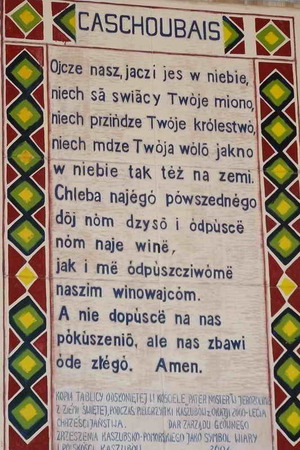 CASCHOUBAIS
Ojcze nasz, jaczi jes w niebie,
niech sã swiãcy Twòje miono,
niech przińdze Twòje królestwò,
niech mdze Twòja wòlô jakno
w niebie tak téż na zemi.
Chleba najégò pòwszednégo
dôj nóm dzysô i òdpùscë
nóm naje winë,
jak i më òdpùszcziwómë
naszim winowajcóm.
A nie dopùscë na nas
pòkùszeniô, ale nas zbawi
òde złégò. Amen.
KOPIA TABLICY ODSŁONIĘTEJ W KOŚCIELE PATER NOSTER W JEROZOLIMIE
Z ZIEMI ŚWIĘTEJ, PODCZAS PIELGRZYMKI KASZUBÓW Z OKAZJI 2000-LECIA
CHRZEŚCIJAŃSTWA. DAR ZARZĄDU GŁÓWNEGO
ZRZESZENIA KASZUBSKO-POMORSKIEGO JAKO SYMBOL WIARY
I POLSKOŚCI KASZUBÓW